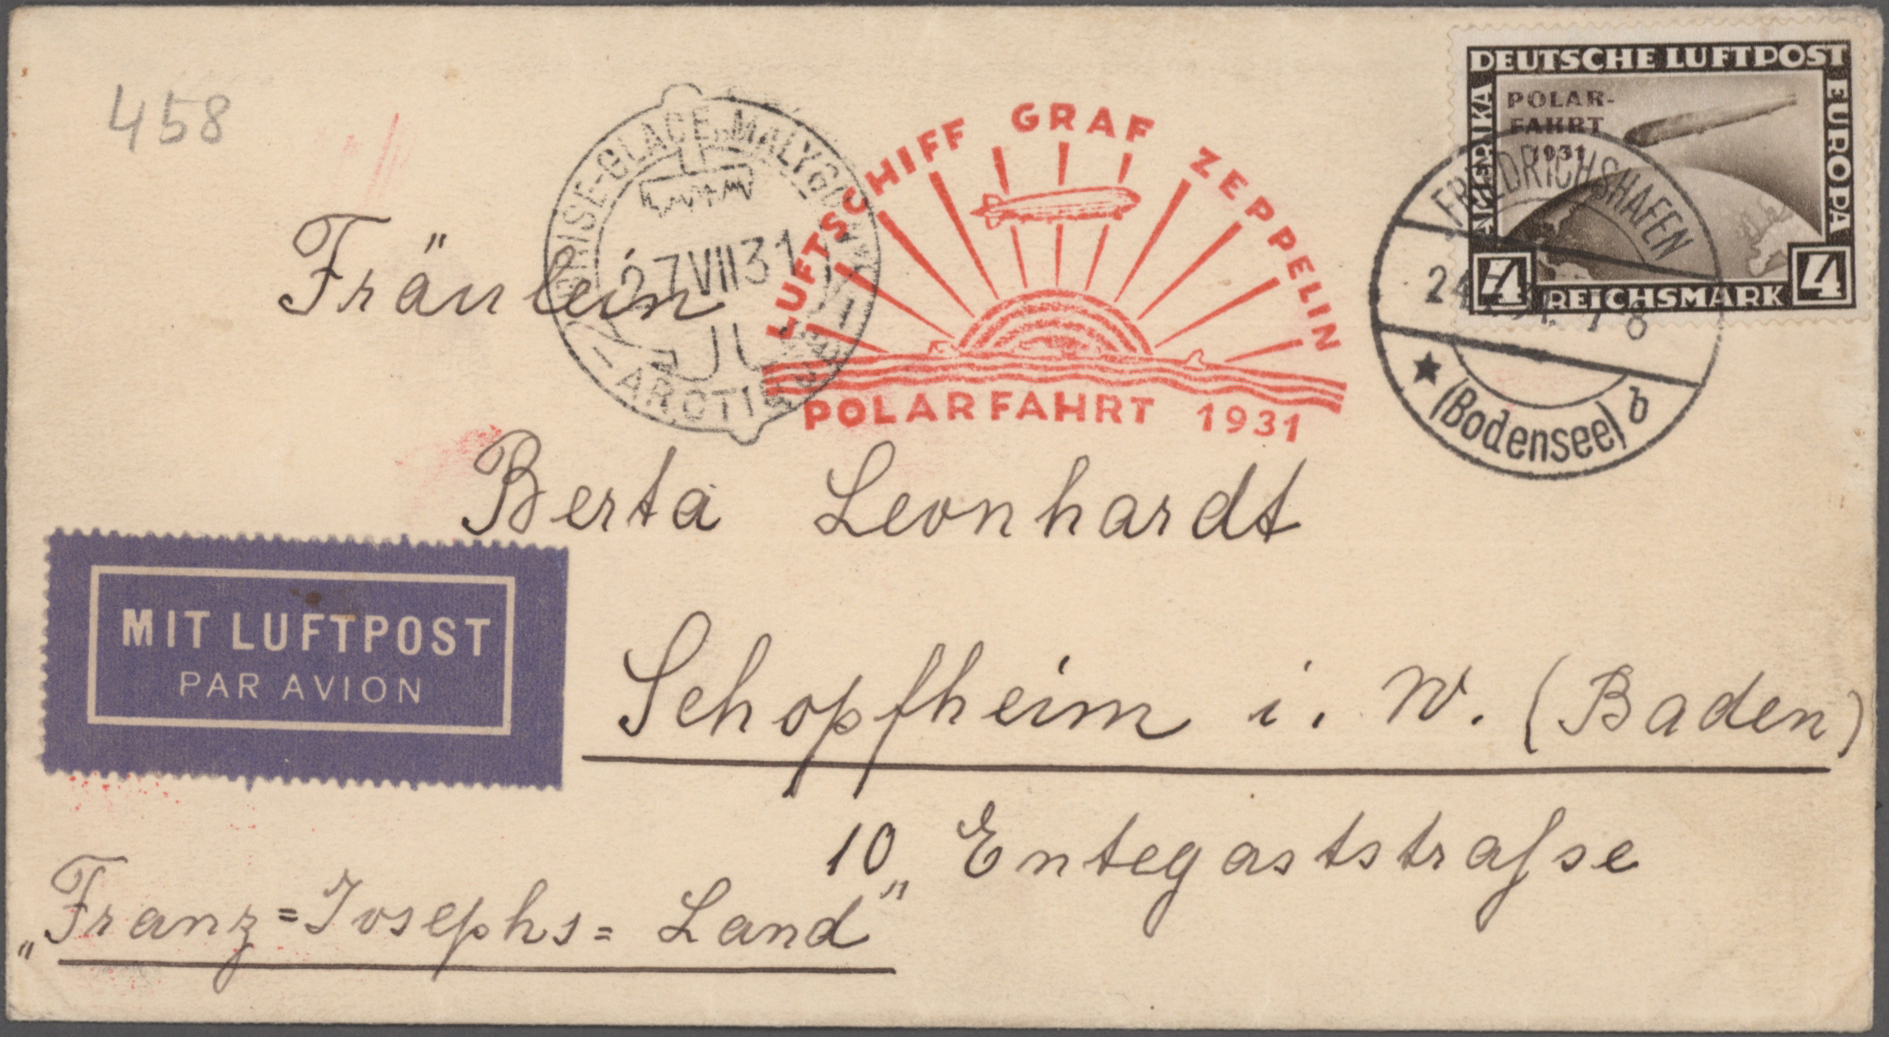 458
BRISE-GLACE „MALYGUIN”
27 VII 31
ARCTIS
LUFTSCHIFF GRAF ZEPPELIN
POLARFAHRT 1931
DEUTSCHE LUFTPOST
AMERIKA
EUROPA
POLAR-
FAHRT
1931
4 REICHSMARK 4
FRIEDRICHSHAFEN
(Bodensee) b
Fräulein
Berta Leonhardt
MIT LUFTPOST
PAR AVION
Schopfheim i. W. (Baden)
10 Entegaststraſse
„Franz=Josephs=Land”